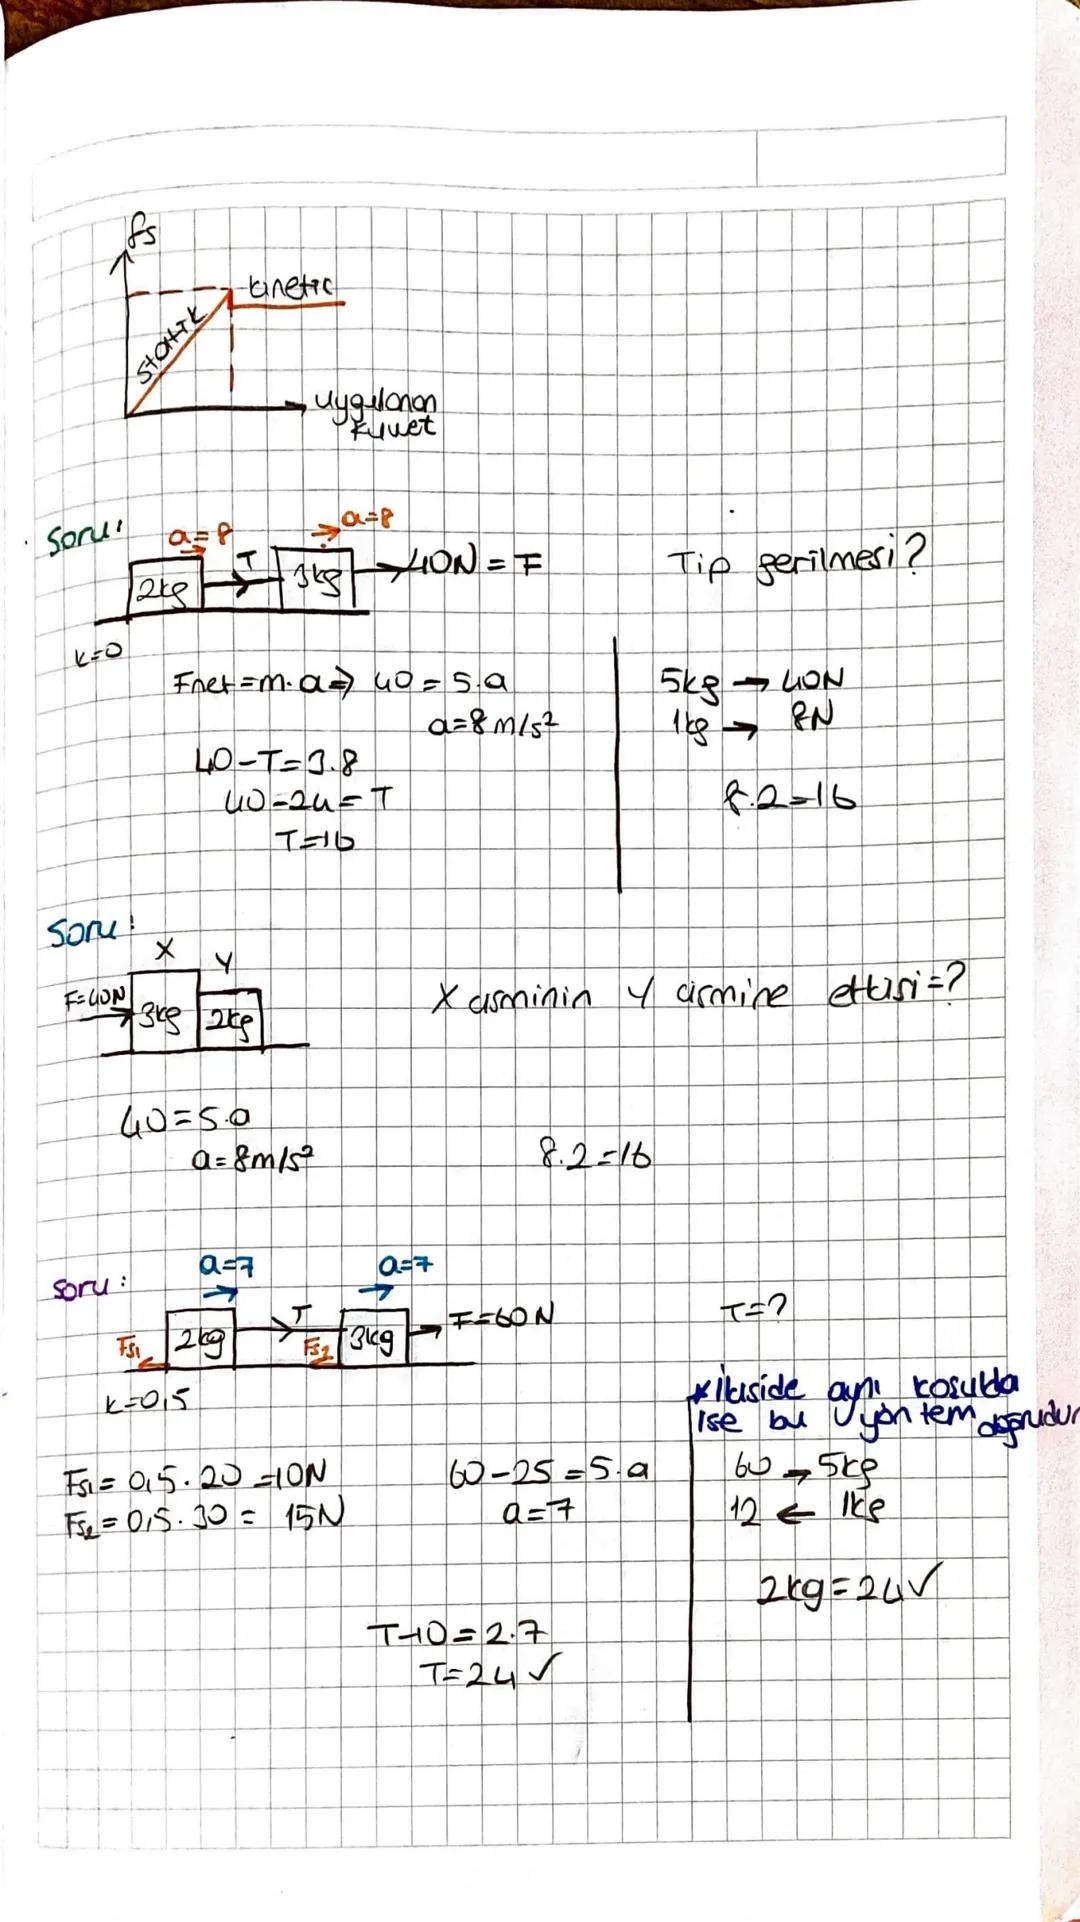 fs
kinetic
statik
uygulanan
kuvvet
Soru:
a=8
a=8
2kg
T
3kg
40N = F
Tip gerilmesi?
k=0
Fnet=m.a ⇒ 40=5.a
a=8m/s²
40-T=3.8
40-24=T
T=16
5kg → 40N
1kg → 8N
8.2=16
Soru:
X
Y
F=40N
3kg
2kg
X cisminin Y cismine etkisi=?
40=5.a
a=8m/s²
8.2=16
soru:
a=7
a=7
Fs1
2kg
T
Fs2
3kg
F=60N
T=?
k=0,5
*ikiside aynı koşulda
ise bu yöntem doğrudur
Fs1=0,5.20=10N
Fs2=0,5.30=15N
60-25=5.a
a=7
60 → 5kg
12 ← 1kg
2kg=24✓
T-10=2.7
T=24✓